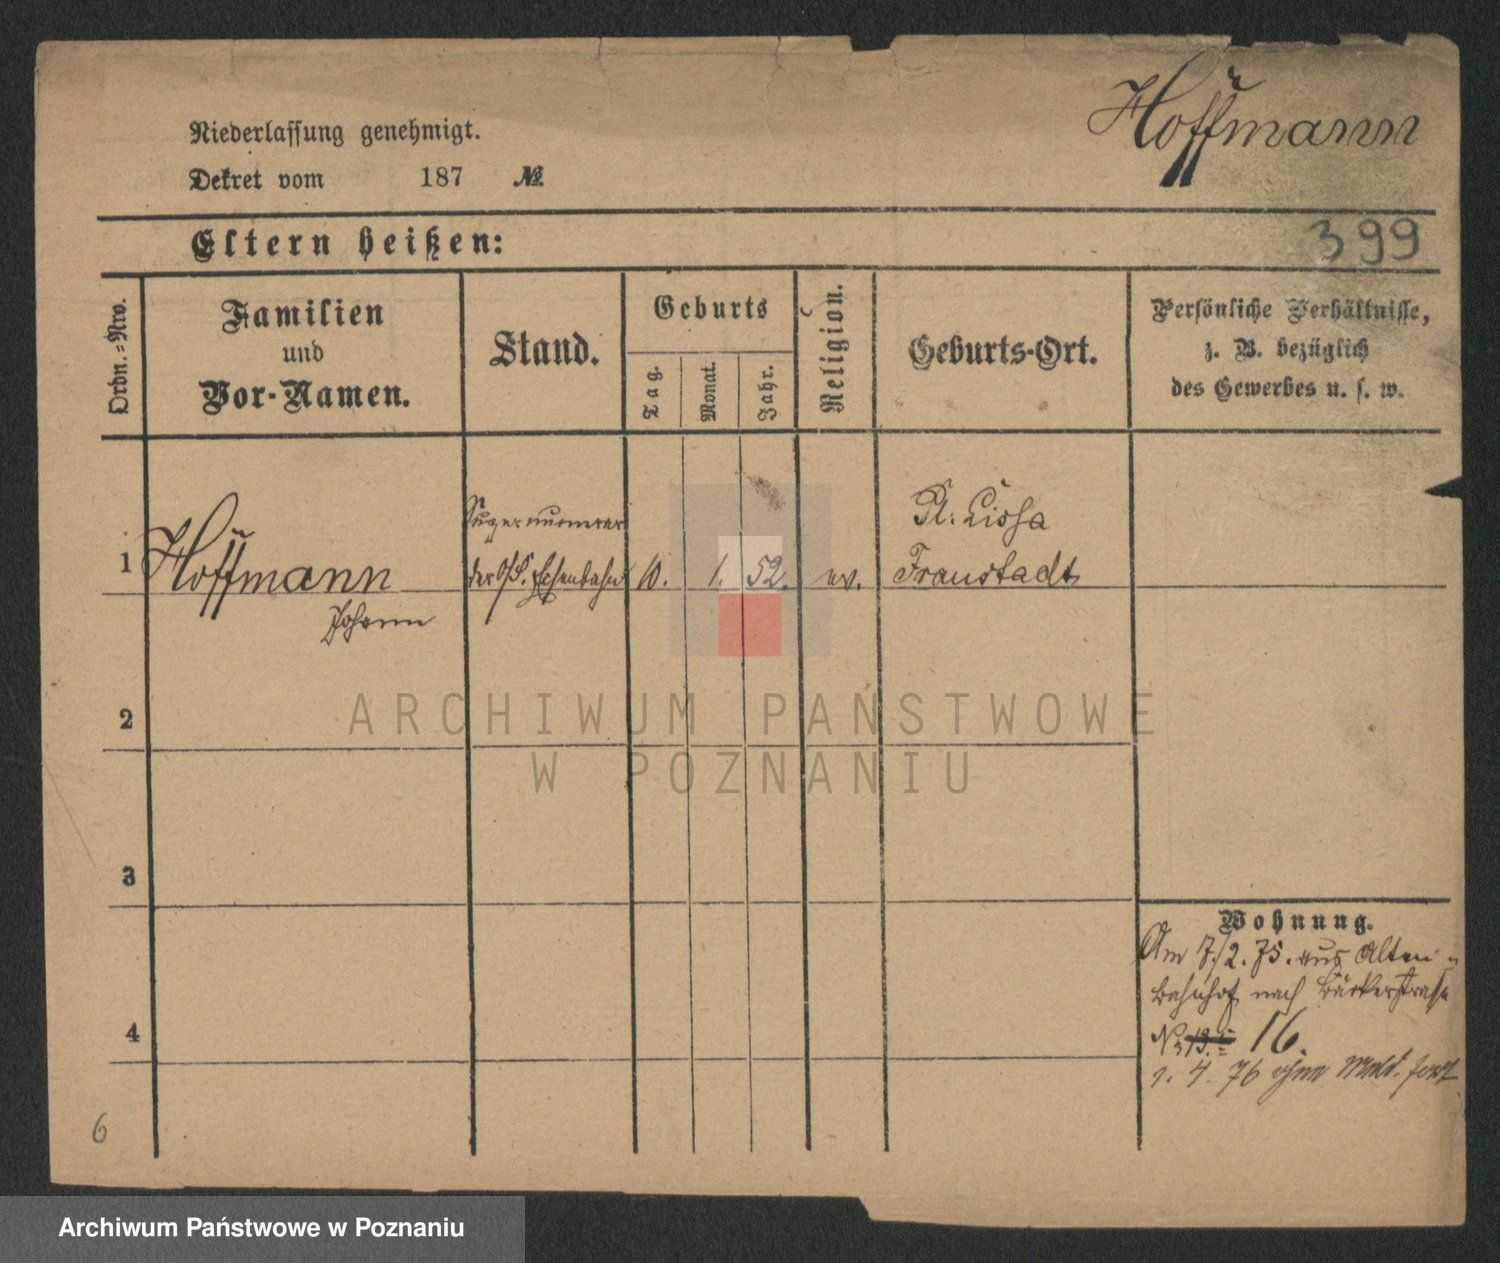 Hoffmann
Niederlassung genehmigt.
Dekret vom 187 №
399
Eltern heißen:
Ordn.=Nro.
Familien
und
Vor-Namen.
Stand.
Geburts
Tag.
Monat.
Jahr.
Religion.
Geburts-Ort.
Persönliche Verhältnisse,
z. B. bezüglich
des Gewerbes u. s. w.
1
Hoffmann
Johann
Supernumerar
der O/S. Eisenbahn
10.
1.
52.
ev.
Pl. Lissa
Fraustadt
2
3
4
Wohnung.
Am 7./2. 75. aus Alten
Bahnhof nach Bäckerstrasse
No 19. 16.
1. 4. 76 ohne Meld. fort
6
ARCHIWUM PAŃSTWOWE
W POZNANIU
Archiwum Państwowe w Poznaniu